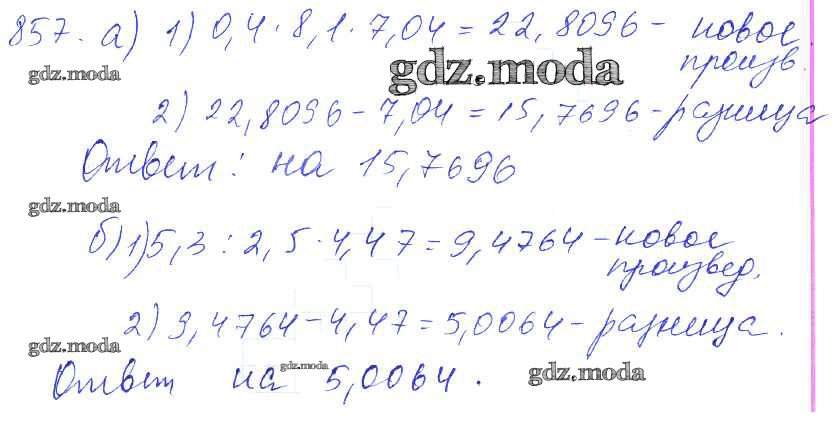 857. а) 1) 0,4 · 8,1 · 7,04 = 22,8096 - новое
произв.
gdz.moda
gdz.moda
2) 22,8096 - 7,04 = 15,7696 - разница
Ответ: на 15,7696
gdz.moda
б) 1) 5,3 : 2,5 · 4,47 = 9,4764 - новое
произвед.
2) 9,4764 - 4,47 = 5,0064 - разница.
gdz.moda
gdz.moda
Ответ на 5,0064.
gdz.moda